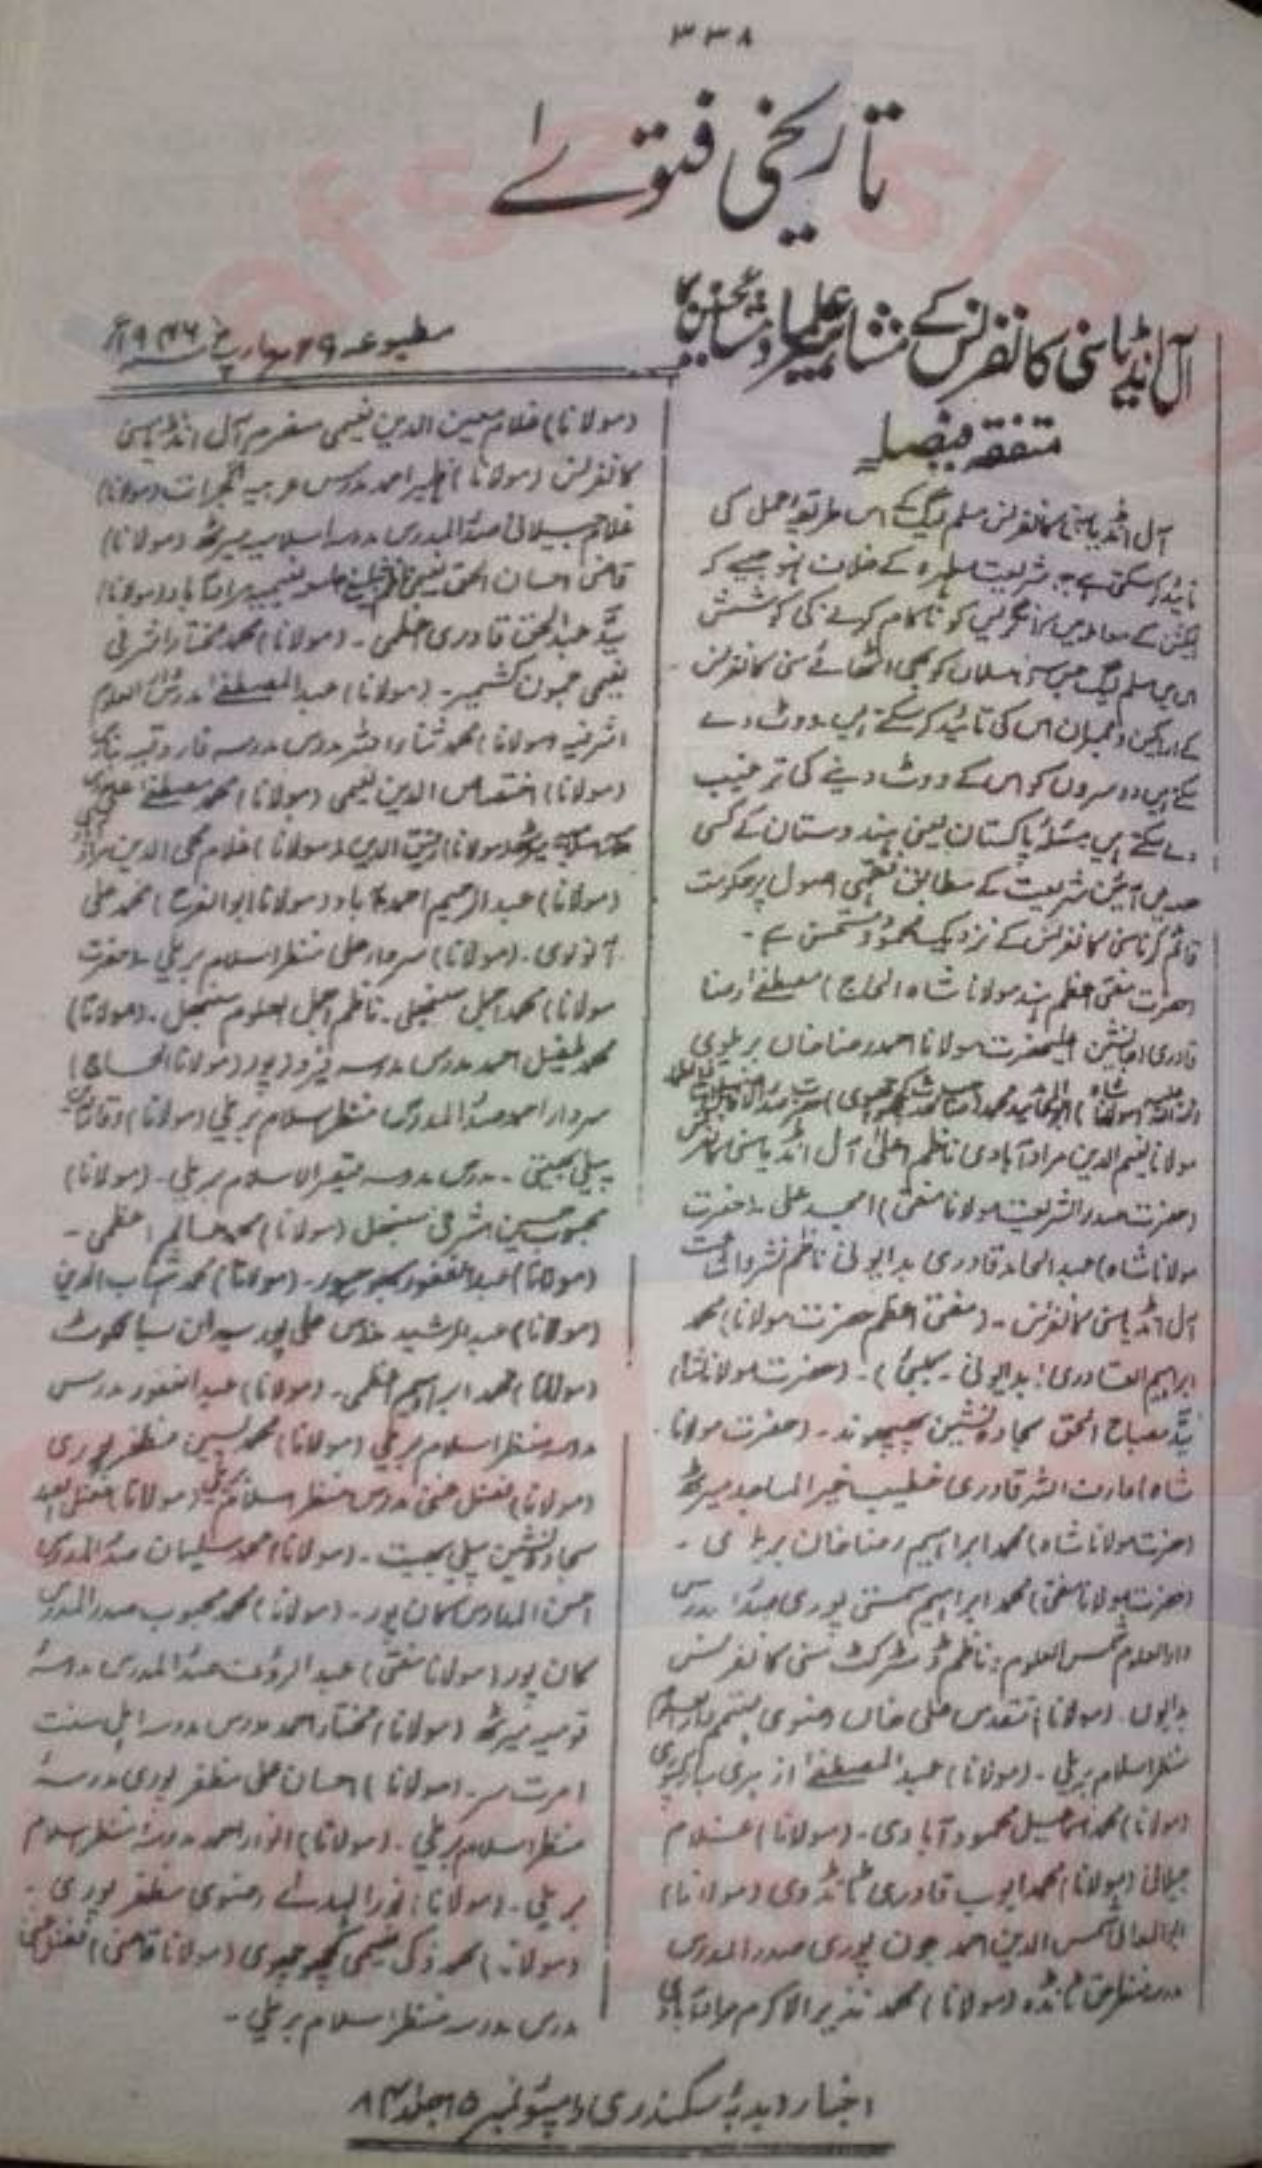 ۳۳۸
تاریخی فتوے
آل انڈیا سنی کانفرنس کے مشاہیر علماء و مشائخین کا
متفقہ فیصلہ
آل انڈیا سنی کانفرنس مسلم لیگ کے اس طریقہ عمل کی
تائید کرسکتی ہے جو شریعت مطہرہ کے خلاف نہ ہو جیسے کہ
الیکشن کے معاملہ میں کانگریس کو ناکام کرنے کی کوشش
اس میں مسلم لیگ جس سنی مسلمان کو بھی اٹھائے سنی کانفرنس
کے اراکین و ممبران اس کی تائید کرسکتے ہیں ووٹ دے
سکتے ہیں دوسروں کو اس کے ووٹ دینے کی ترغیب
دے سکتے ہیں مسئلہ پاکستان یعنی ہندوستان کے کسی
حصہ میں آئین شریعت کے مطابق فقہی اصول پر حکومت
قائم کرنا سنی کانفرنس کے نزدیک محمود و مستحسن ہے ۔
(حضرت مفتی اعظم ہند مولانا شاہ الحاج) مصطفےٰ رضا
قادری (جانشین اعلیحضرت مولانا احمد رضا خاں بریلوی
مولانا نعیم الدین مرادآبادی ناظم اعلیٰ آل انڈیا سنی کانفرنس
(حضرت صدر الشریعت مولانا مفتی) امجد علی ۔ (حضرت
مولانا شاہ) عبدالحامد قادری بدایونی ناظم نشر و اشاعت
آل انڈیا سنی کانفرنس ۔ (مفتی اعظم حضرت مولانا) محمد
ابراہیم القادری (بدایونی ۔ بمبئی) ۔ (حضرت مولانا شاہ)
سید مصباح الحق سجادہ نشین پھپھوند ۔ (حضرت مولانا
شاہ) عارف اللہ قادری خطیب خیر المساجد میرٹھ
(حضرت مولانا شاہ) محمد ابراہیم رضا خان بریلوی ۔
(حضرت مولانا مفتی) محمد ابراہیم سمستی پوری صدر مدرس
دارالعلوم شمس العلوم، ناظم ڈسٹرکٹ سنی کانفرنس
بدایوں ۔ (مولانا) تقدس علی خاں رضوی مہتمم دارالعلوم
منظر اسلام بریلی ۔ (مولانا) عبدالمصطفےٰ از ہری
(مولانا) محمد اسماعیل محمود آبادی ۔ (مولانا) غلام
جیلانی (مولانا) محمد ایوب قادری ٹانڈوی (مولانا)
ابوالمعالی شمس الدین احمد جون پوری صدر المدرس
مدرسہ منظر حق ٹانڈہ (مولانا) محمد نذیر الاکرم مرادآبادی
مطبوعہ ۲۹ مارچ سنہ ۱۹۴۶ء
(مولانا) غلام معین الدین نعیمی آل انڈیا سنی
کانفرنس (مولانا) ظہیر احمد مدرس عربیہ گجرات (مولانا)
غلام جیلانی صدر المدرس مدرسہ اسلامیہ میرٹھ (مولانا)
قاضی احسان الحق نعیمی نعیمیہ مرادآباد (مولانا)
سید عبدالحق قادری اعظمی ۔ (مولانا) محمد مختار اشرفی
نعیمی جموں کشمیر ۔ (مولانا) عبدالمصطفےٰ مدرس دارالعلوم
اشرفیہ (مولانا) محمد ثناء اللہ مدرس مدرسہ فاروقیہ بنارس
(مولانا) اختصاص الدین نعیمی (مولانا) محمد مصطفےٰ علی
میرٹھ (مولانا) رفیق الدین (مولانا) غلام محی الدین
(مولانا) عبدالرحیم احمدآباد (مولانا ابوالفرح) محمد علی
آنولوی ۔ (مولانا) سردار علی منظر اسلام بریلی ۔ (حضرت
مولانا) محمد اجمل سنبھلی ۔ ناظم اجمل العلوم سنبھل ۔ (مولانا)
محمد طفیل احمد مدرس مدرسہ فیروزپور (مولانا الحاج)
سردار احمد صدر المدرس منظر اسلام بریلی (مولانا) وقار الدین
پیلی بھیتی ۔ مدرس مدرسہ منظر الاسلام بریلی ۔ (مولانا)
محبوب حسین اشرفی سنبھل (مولانا) محمد صالح اعظمی ۔
(مولانا) عبدالغفور ۔ (مولانا) محمد شہاب الدین
(مولانا) عبدالرشید مدرس علی پور سیداں سیالکوٹ
(مولانا) محمد ابراہیم اعظمی ۔ (مولانا) عبدالغفور مدرس
مدرسہ منظر اسلام بریلی (مولانا) محمد یٰسین مظفر پوری
(مولانا) فضل غنی مدرس منظر اسلام بریلی (مولانا) فضل احمد
سجادہ نشین پیلی بھیت ۔ (مولانا) محمد سلیمان صدر المدرس
احسن المدارس کان پور ۔ (مولانا) محمد محبوب صدر المدرس
کان پور (مولانا مفتی) عبدالرؤف صدر المدرس مدرسہ
قومیہ میرٹھ (مولانا) مختار احمد مدرس مدرسہ اہل سنت
امرتسر ۔ (مولانا) احسان علی مظفر پوری مدرسہ
منظر اسلام بریلی ۔ (مولانا) انوار احمد مدرسہ منظر اسلام
بریلی ۔ (مولانا) نور الہدےٰ رضوی مظفر پوری ۔
(مولانا) محمد ذکی نعیمی کچھوچھوی (مولانا قاضی)
مدرس مدرسہ منظر اسلام بریلی ۔
اخبار دبدبۂ سکندری رامپور نمبر ۱۵ جلد ۸۳